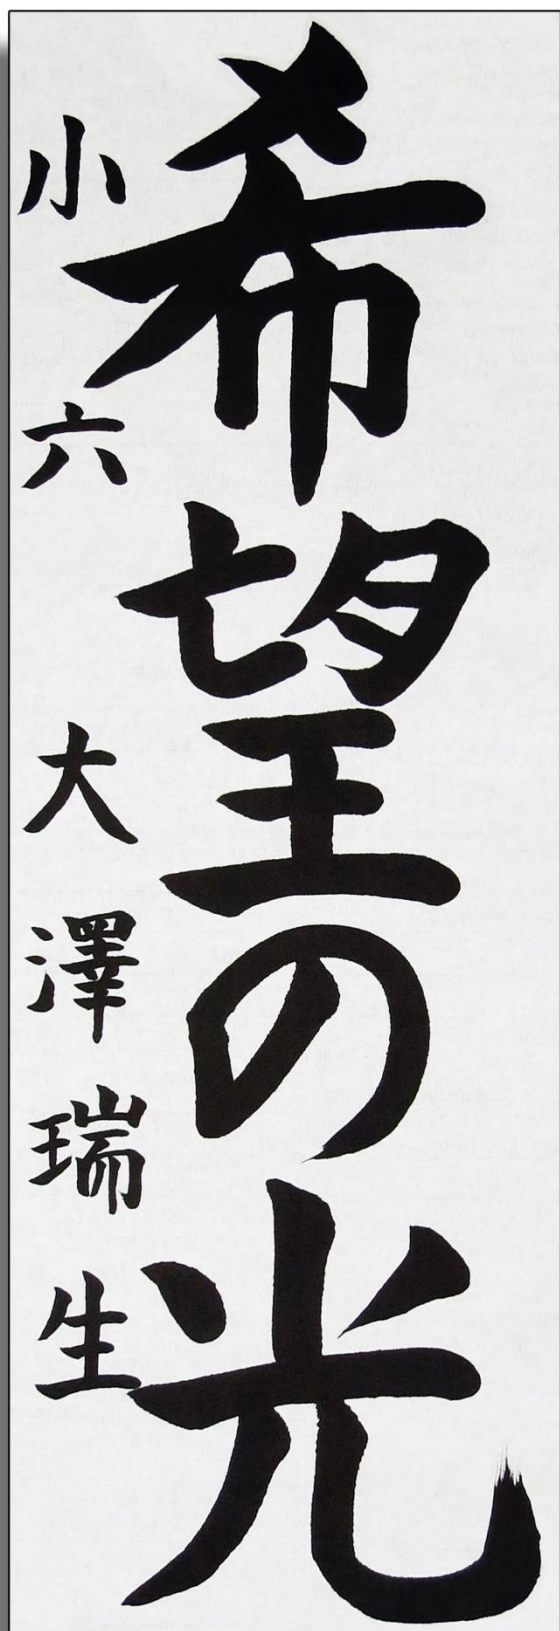 希望の光
小六 大澤瑞生